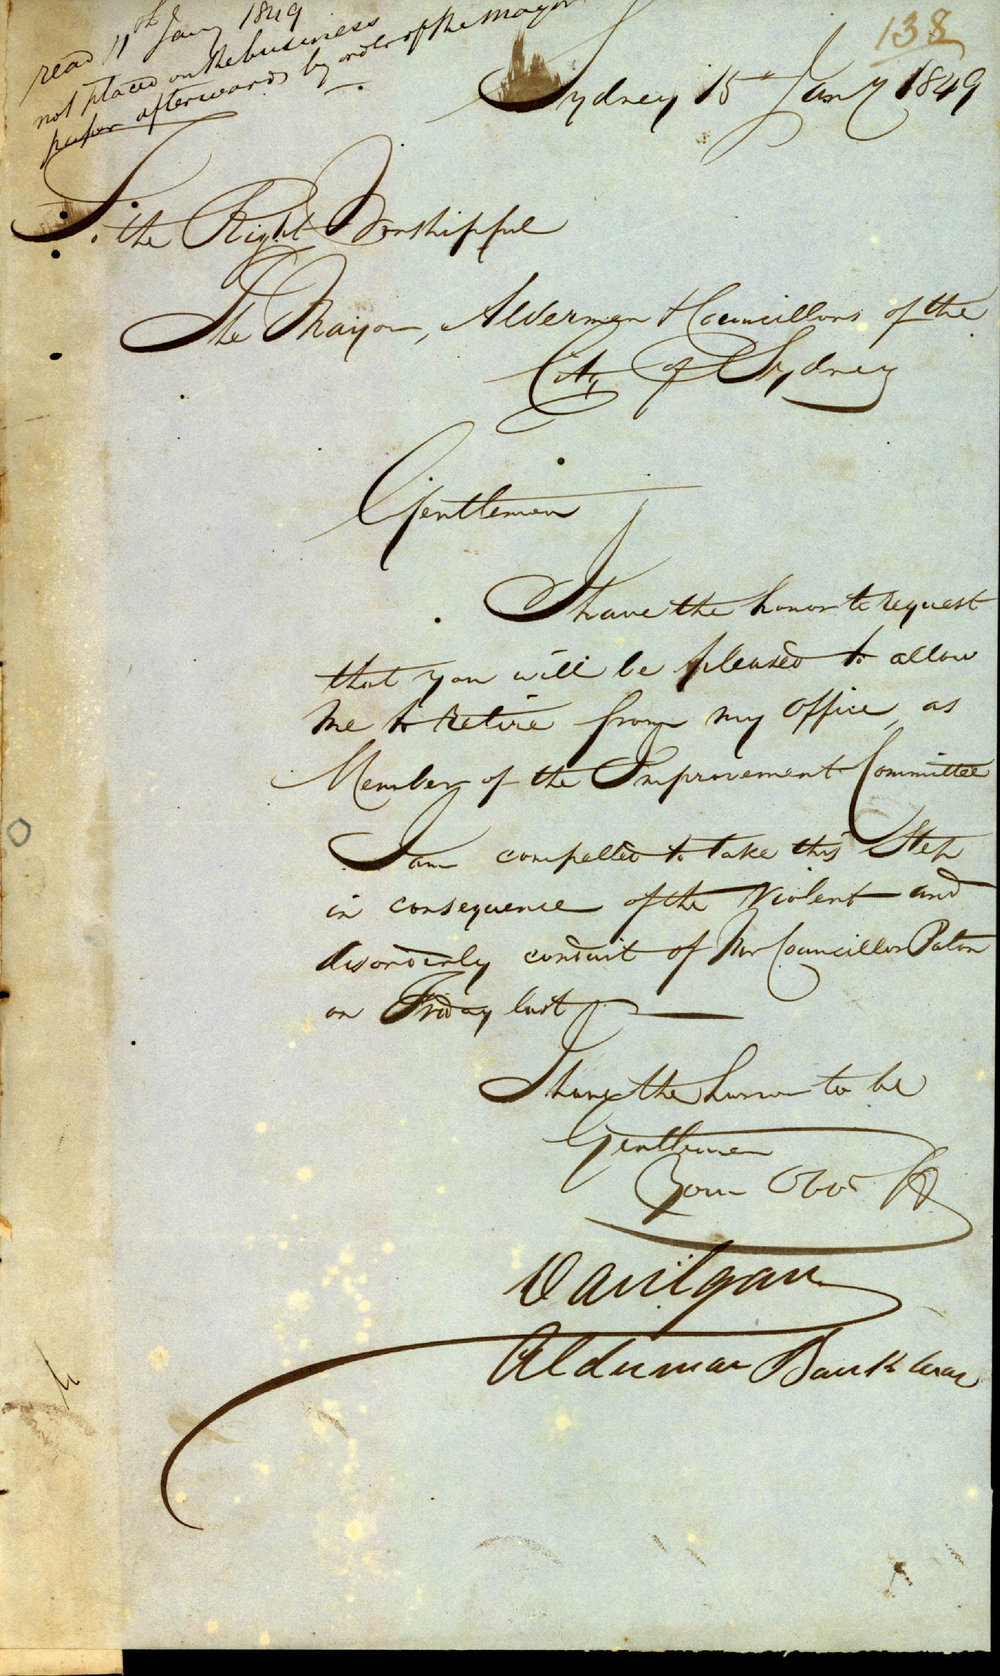 read 11th Jany 1849
not placed on the business
paper afterwards by order of the Mayor
138
Sydney 15th Jany 1849
To the Right Worshipful
The Mayor, Aldermen & Councillors of the
City of Sydney
Gentlemen
I have the honor to request
that you will be pleased to allow
me to retire from my Office, as
Member of the Improvement Committee
I am compelled to take this Step
in consequence of the Violent and
disorderly conduct of Mr Councillor Paton
on Friday last
I have the honor to be
Gentlemen
Your Obdt St
Alderman Bourke Ward